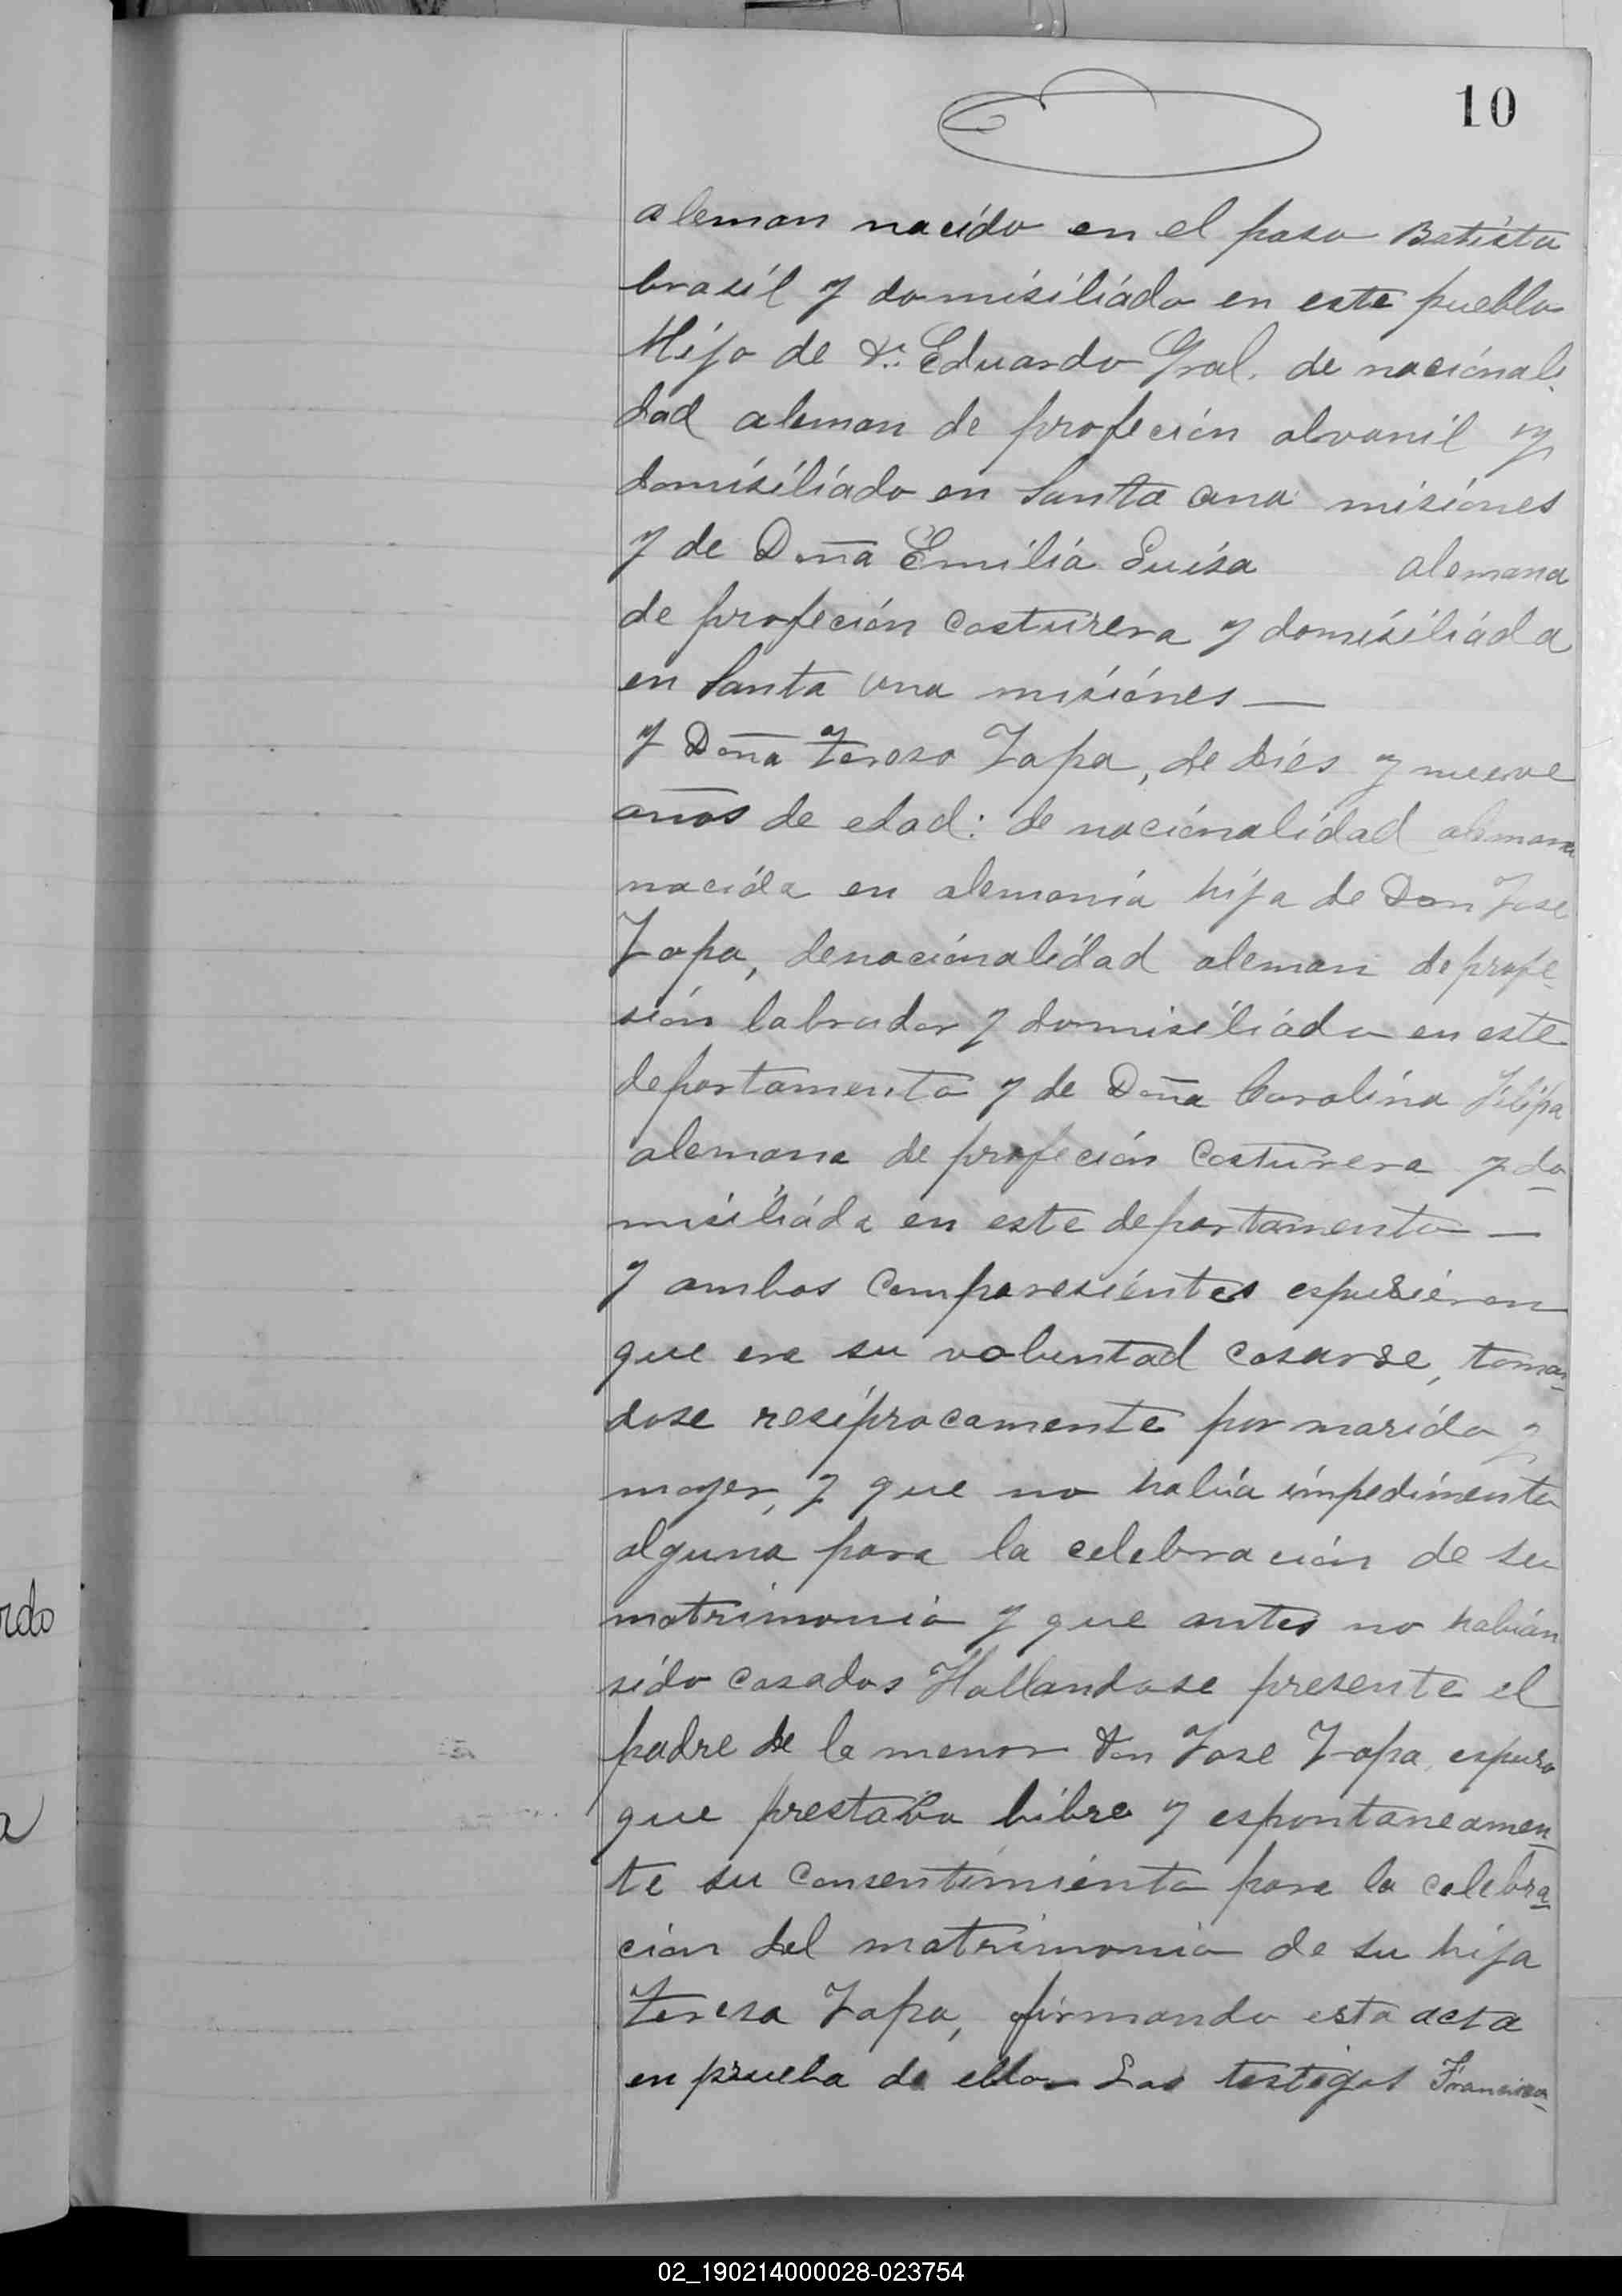 10
aleman nacido en el paso Batista
brasil y domisiliado en este pueblo
Hijo de Dn. Eduardo Gral. de nacionali
dad aleman de profecion alvanil y
domisiliado en Santa ana misiones
y de Doña Emilia Luisa alemana
de profecion costurera y domisiliada
en Santa ana misiones —
y Doña Teresa Zapa, de dies y nueve
años de edad: de nacionalidad alemana
nacida en alemania hija de Don Jose
Zapa, de nacionalidad aleman de profe
sion labrador y domisiliado en este
departamento y de Doña Carolina Filipa
alemana de profecion costurera y do
misiliada en este departamento —
y ambos comparesientes espusieron
que era su voluntad casarse, toman
dose resiprocamente por marido y
mojer, y que no habia impedimento
alguno para la celebracion de su
matrimonio y que antes no habian
sido casados Hallandose presente el
padre de la menor Don Jose Zapa, espuso
que prestaba libre y espontaneamen
te su consentimiento para la celebra
cion del matrimonio de su hija
Teresa Zapa, firmando esta acta
en prueba de ello — Los testigos Francisco
rdo
a
02_190214000028-023754